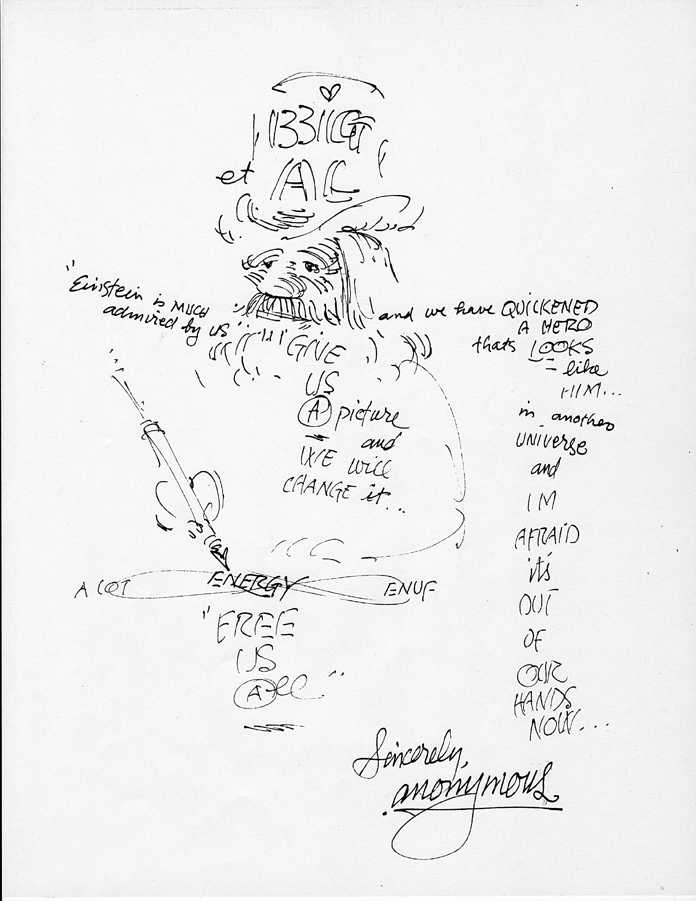 et AL
"Einstein is MUCH
admired by US"
and we have QUICKENED
A HERO
thats LOOKS
like
HIM...
in another
UNIVERSE
and
IM
AFRAID
it's
OUT
OF
OUR
HANDS
NOW...
GIVE
US
A picture
and
WE will
CHANGE it...
A LOT ENERGY ENUF
"FREE
US
All"
Sincerely,
anonymous